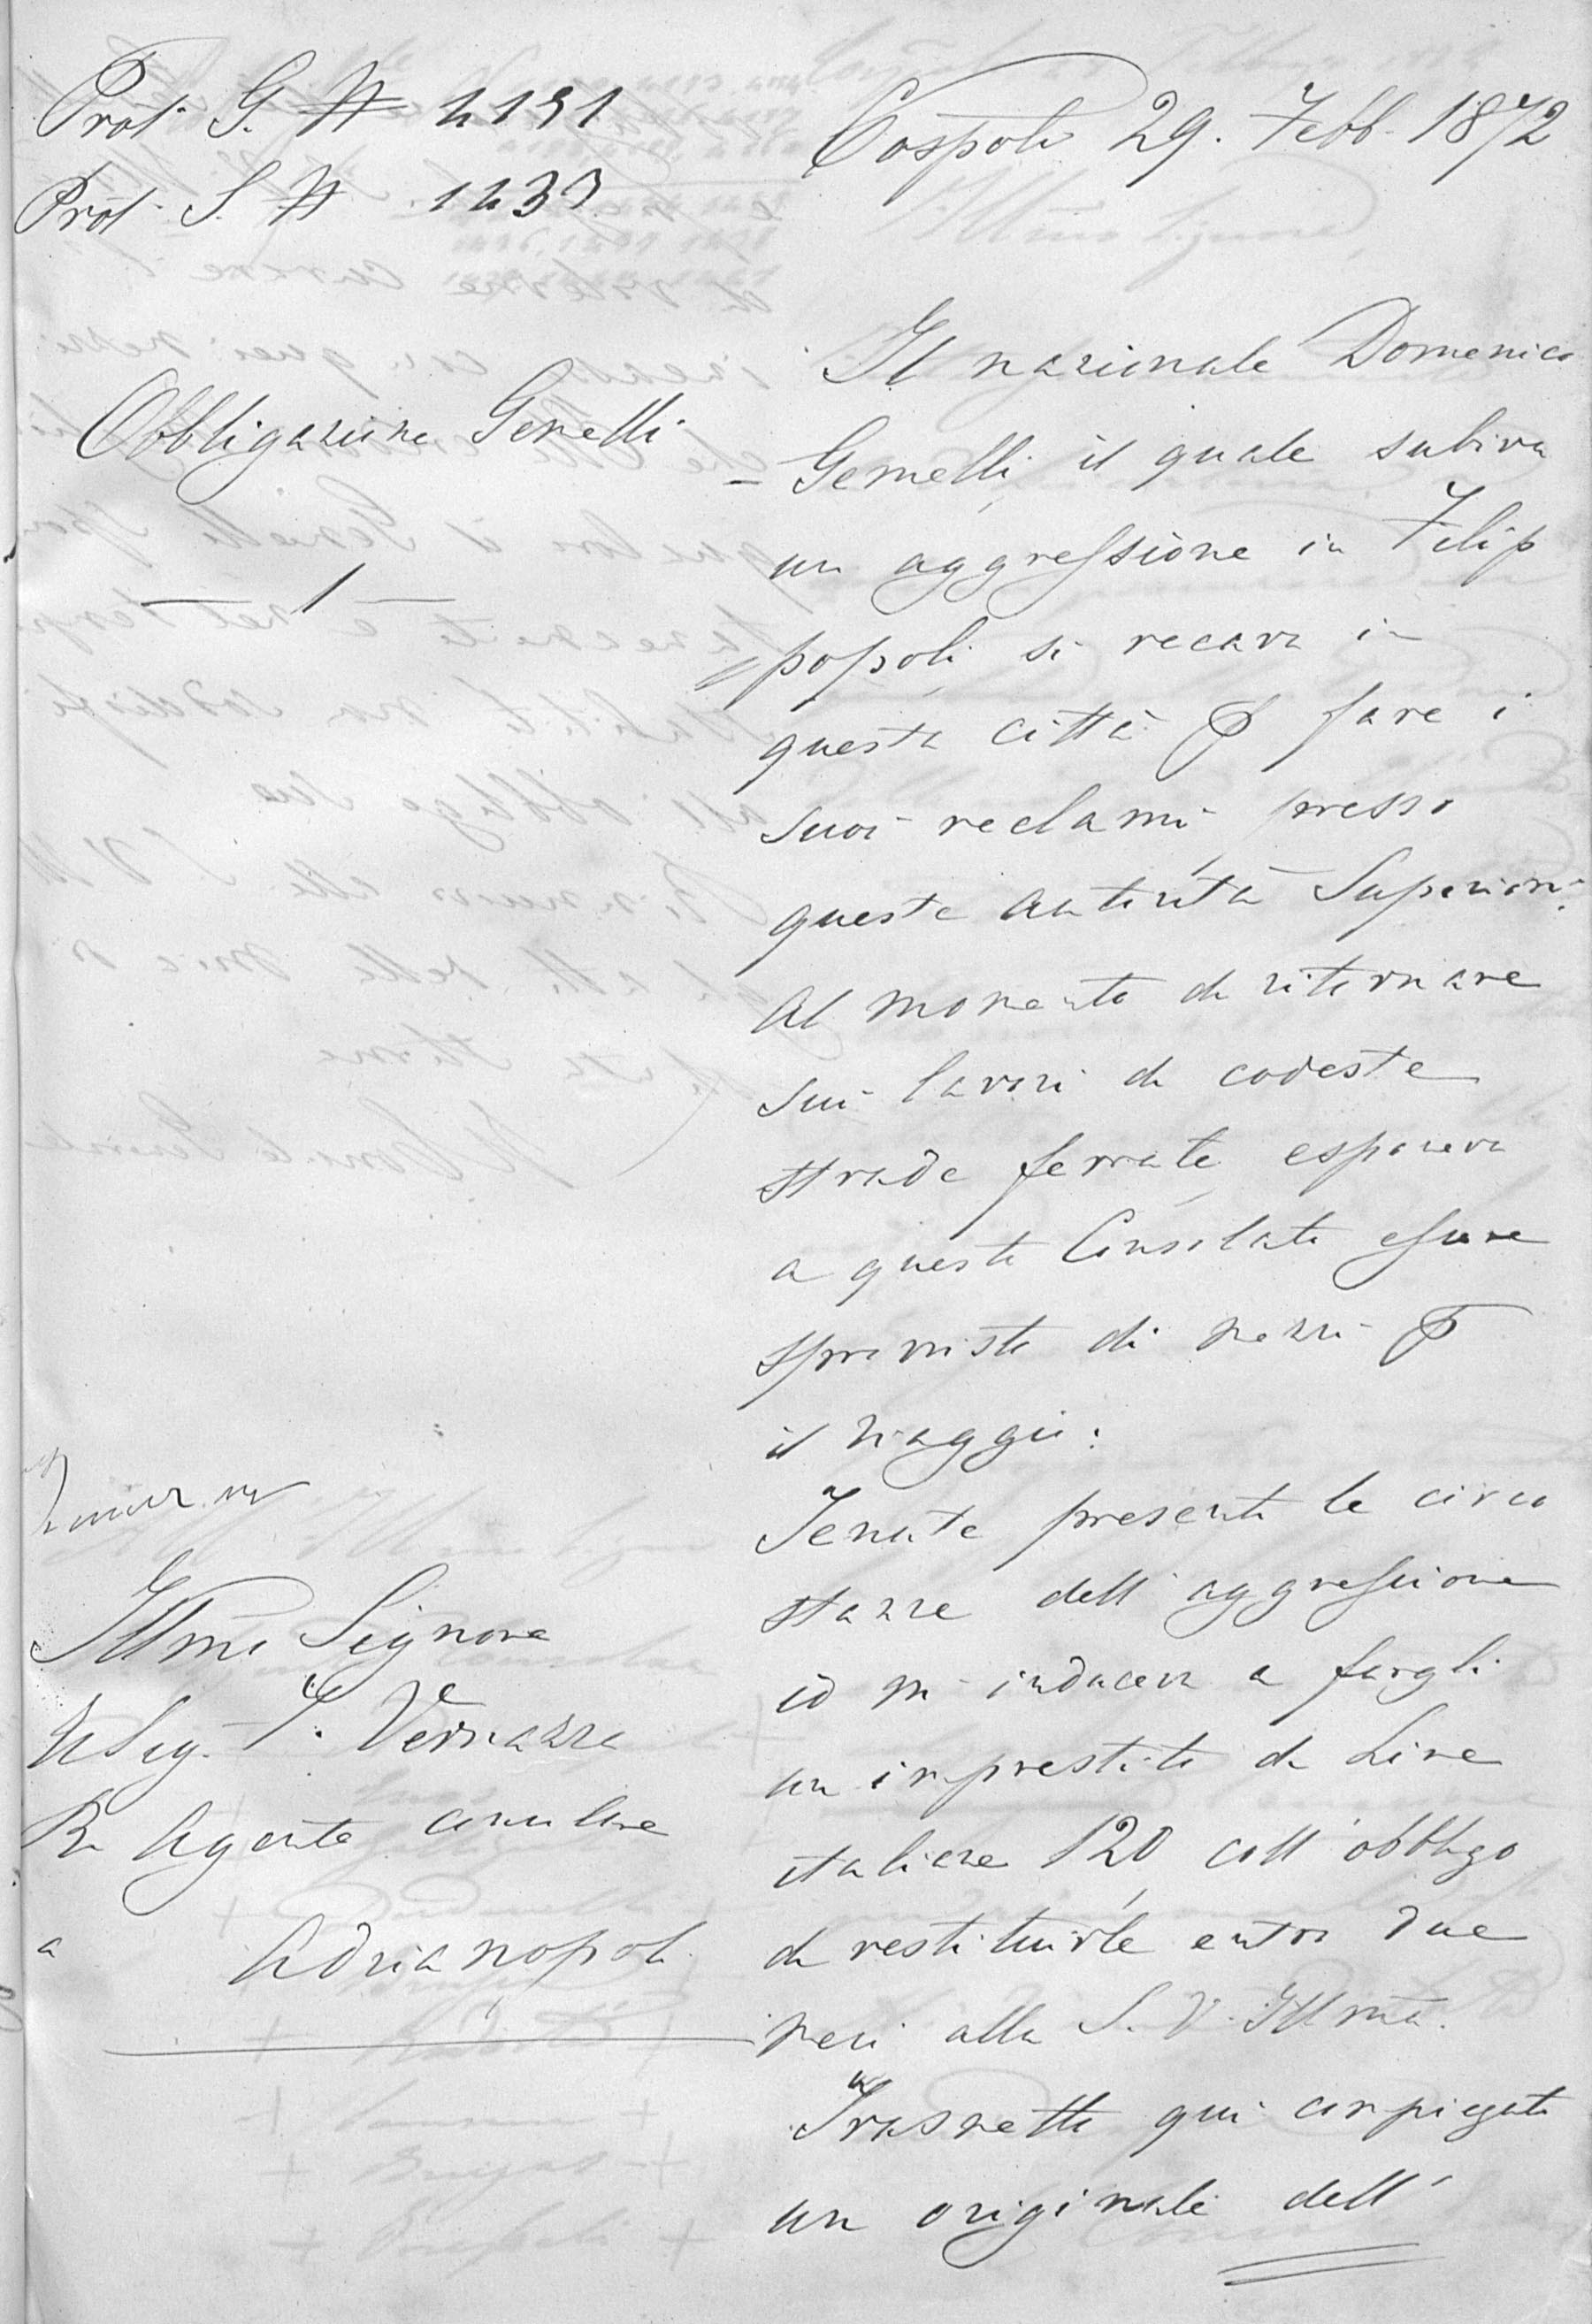 Prot. G. N 2191
Prot. S. N 1233
Cospoli 29. Febb. 1872
Obbligazione Gemelli
— 1 —
Il nazionale Domenico
Gemelli, il quale subiva
un aggressione in Filip
popoli, si recava in
questa città P fare i
suoi reclami presso
queste autorità Superiori.
Al momento di ritornare
sui lavori di codeste
strade ferrate, esponeva
a questo Consolato essere
sprovvisto di mezzi P
il viaggio.
Tenute presenti le circo
stanze dell'aggressione
iò m'induceva a fargli
un imprestito di Lire
italiane 120, coll'obbligo
di restituirle entro due
mesi alla S. V. Illma.
Trasmetto qui compiegato
un originale dell'
Illmo Signore
Il Sig. T. Vernazza
R Agente consolare
a Adrianopoli